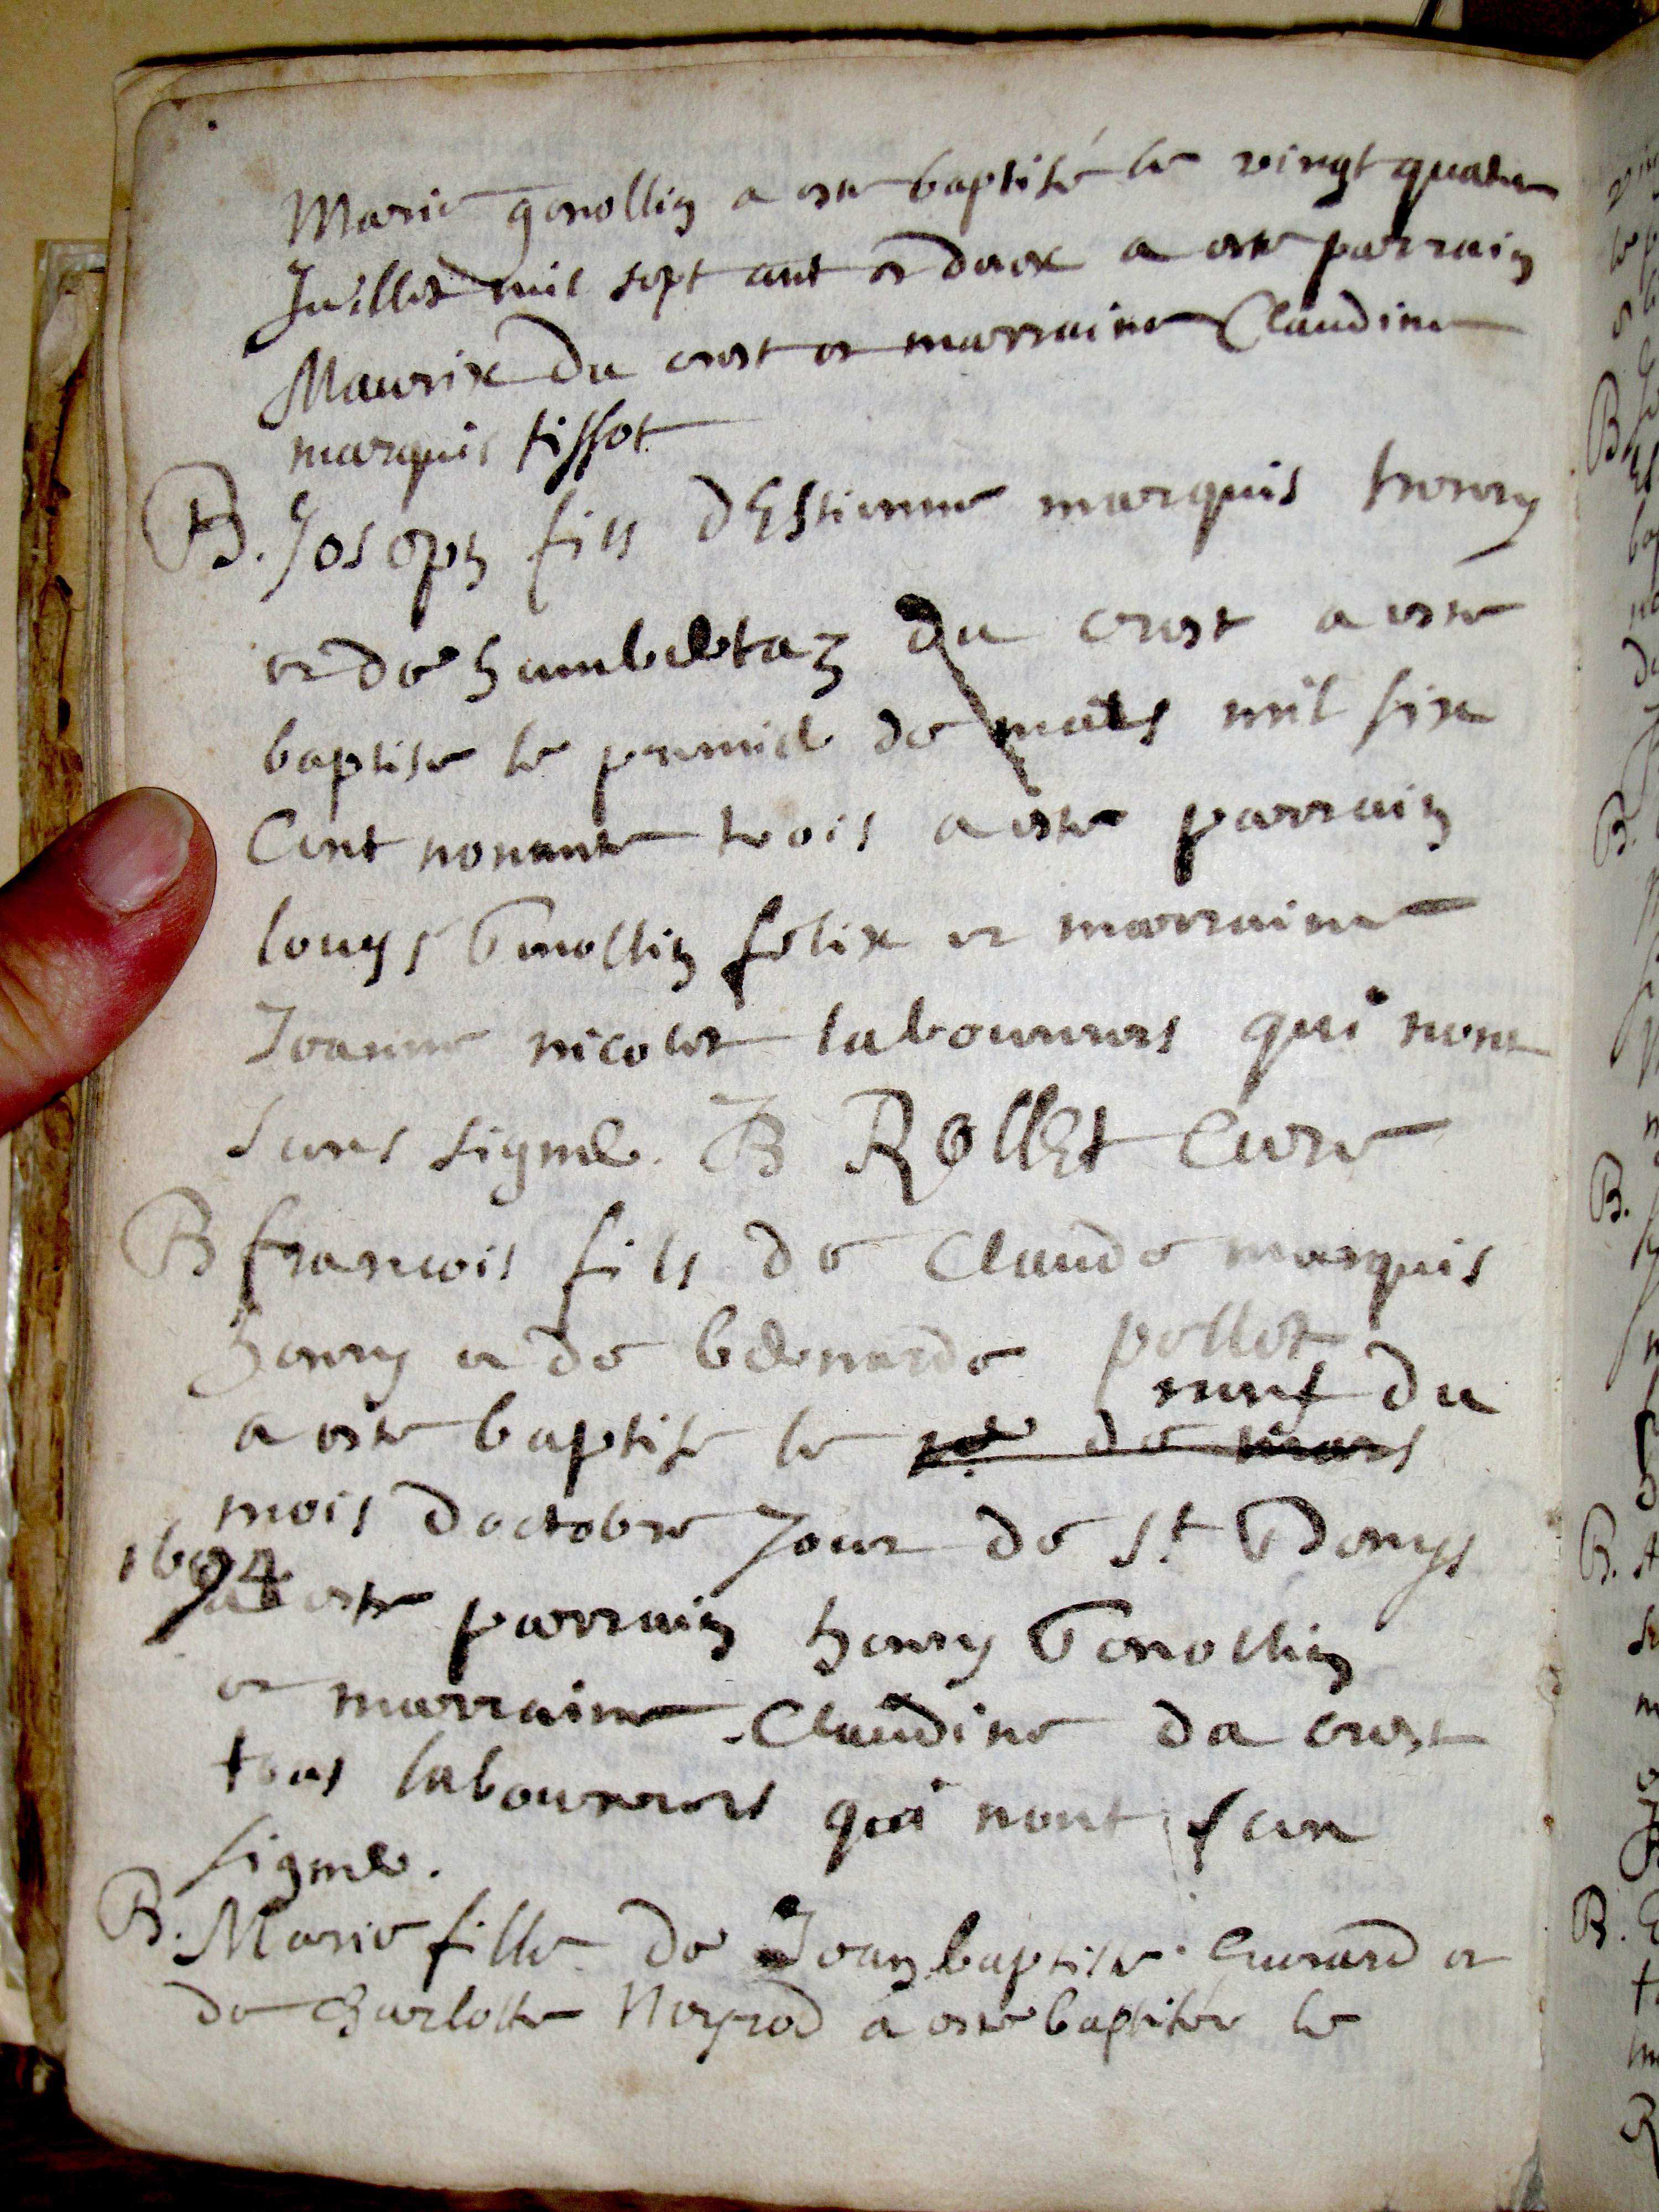 Marie genollin a este baptisé le vingt quatre
Juillet mil sept cent et deux a este parrain
Maurix du crest et marraine Claudine
marquis tissot
B. Joseph fils dEstienne marquis henry
et de humbertaz du crest a este
baptise le premier de mars mil six
Cent nonante trois a este parrain
louys Genollin felix et marraine
Jeanne nicolet laboureurs qui nont
sceus signer. B Rollet Cure
B francois fils de Claude marquis
henry et de bernarde pollet
neuf du
a este baptise le
mois doctobre Jour de St Denys
1694
a este parrain henry Genollin
et marraine Claudine du crest
tous laboureurs qui nont sceu
signer.
B. Marie fille de Jean baptiste Evrard et
de Charlotte Neyrod a este baptisée le